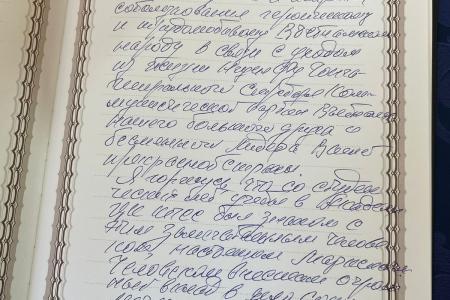 соболезнования героическому
и трудолюбивому Вьетнамскому
народу в связи с уходом
из жизни Нгуен Фу Чонга
Генерального Секретаря Комм
мунистической партии Вьетнама
нашего большого друга и
Лидера Вашей
прекрасной страны.
Я горжусь что со студен
ческих лет учебы в Академии
был знаком с
этим замечательным Челове
ком, настоящим Марксистом
Человеком внесшим огром
ный вклад в дело